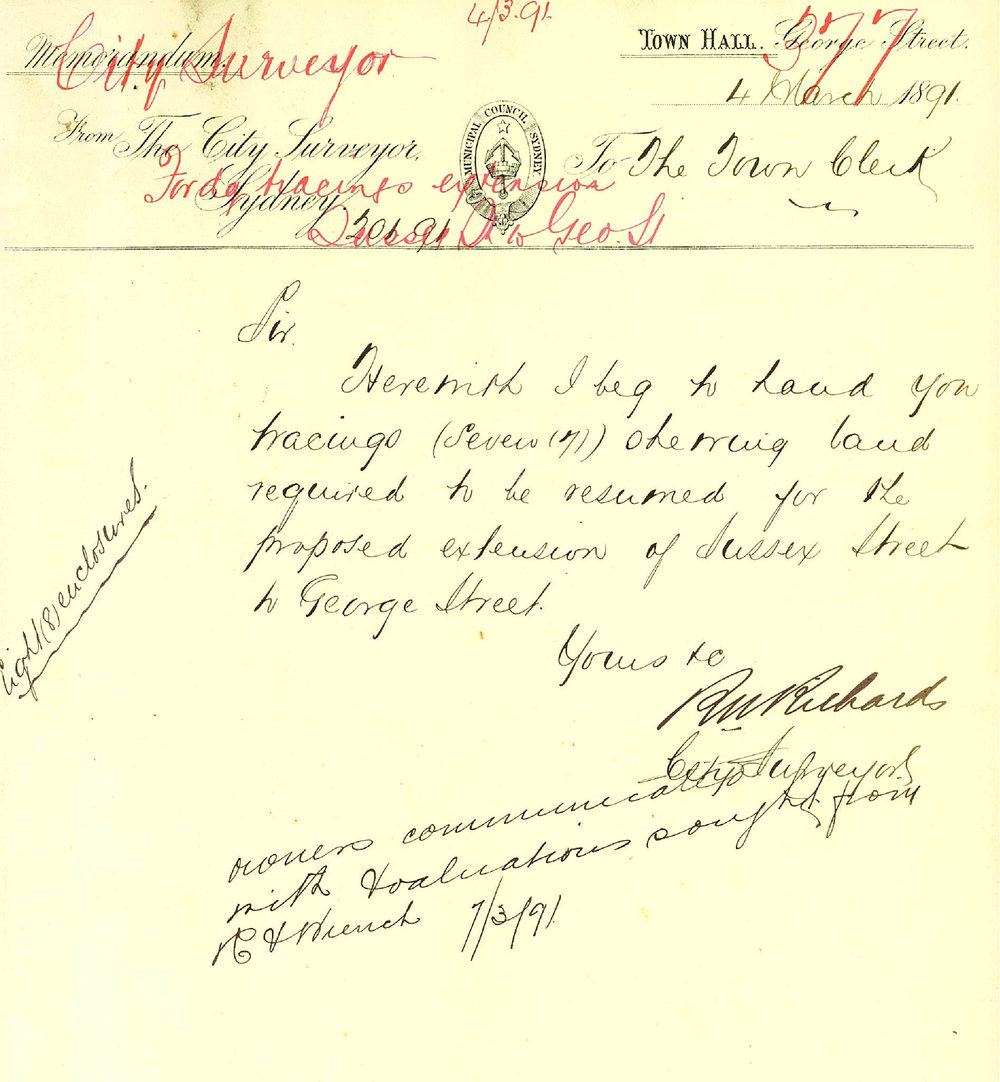 4/3.91
577
City Surveyor
Memorandum
TOWN HALL. George Street.
4 March 1891.
From The City Surveyor,
Sydney.
MUNICIPAL COUNCIL SYDNEY
To The Town Clerk
tracings extension
Sussex St to Geo. St
Sir.
Herewith I beg to hand you
tracings (Seven (7)) showing land
required to be resumed for the
proposed extension of Sussex Street
to George Street.
Eight (8) enclosures.
Yours &c
RWRichards
City Surveyor
owners communicated
with & valuations sought from
R & Wrench 7/3/91